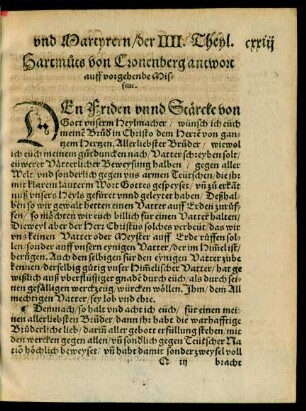 vnd Martyrern/der IIII. Theyl. cxxiij
Hartmůts von Cronenberg antwort
auff vorgehende Mis-
siue.
DEn Friden vnnd Stärcke von
Gott vnserm Heylmacher / wünsch ich euch
meinē Brůd in Christo dem Herrē von gan-
tzen Hertzen. Allerliebster Brüder / wiewol
ich euch meinem gůtduncken nach / Vatter schreyben solt/
ewerer Vätterlicher Beweysung halben / gegen aller
Welt / vnd sonderlich gegen vns armen Teütschen / die jhr
mit klarem lauterm Wort Gottes gespeyset / vn̄ zů erkāt
nuß vnsers Heyls gefüret vnnd geleytet haben / Deßhal-
ben so wir gewalt hetten einen Vatter auff Erden zůrüf-
fen / so möchten wir euch billich für einen Vatter halten/
Dieweyl aber der Herr Christus solches verbeüt / das wir
vns keinen Vatter oder Meyster auff Erde rüffen sol-
len / sonder auff vnsern eynigen Vatter / der im Himel ist/
berügen. Auch den selbigen für den eynigen Vatter zube
kennen / derselbig gütig vnser Himelischer Vatter / hat ge
wißlich auß vberflüssiger gnad durch euch / als durch sei-
nen gefälligen werckzeug / würcken wöllen. Jhm / dem All
mechtigen Vatter / sey lob vnd ehre.
Demnach / so halt vnd acht ich euch / für einen mei-
nen allerliebsten Brüder / dann jhr habt die warhafftige
Brüderliche lieb / darin̄ aller gebott erfüllung stehen / mit
den wercken gegen allen / vn̄ sondlich gegen Teütscher Na
tiō höchlich beweyset / vn̄ habt damit sonder zweysel voll
Q iij bracht